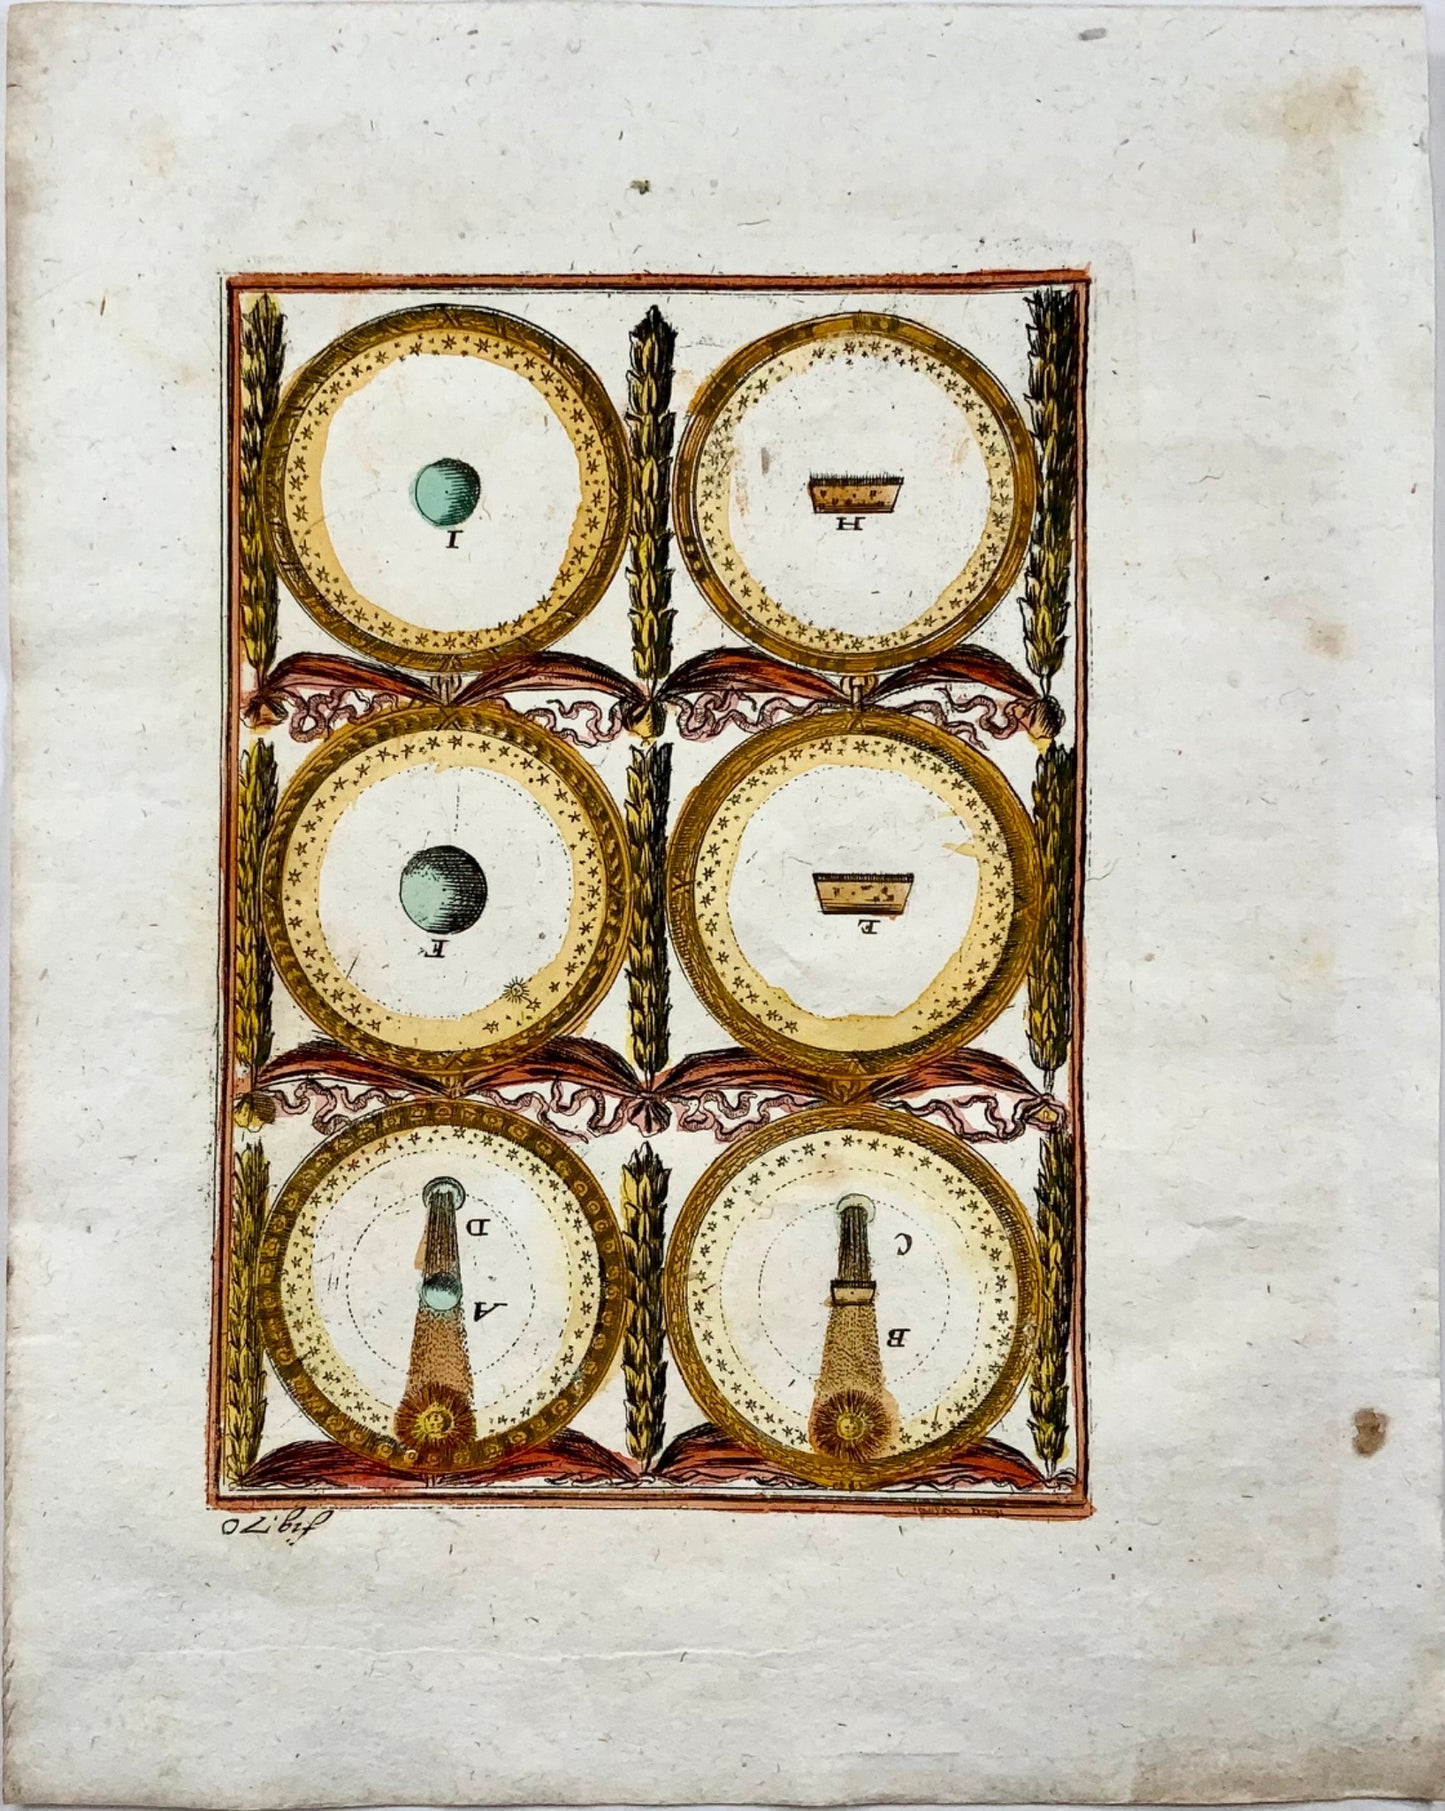 fig. 70
B
A
C
D
E
F
H
I